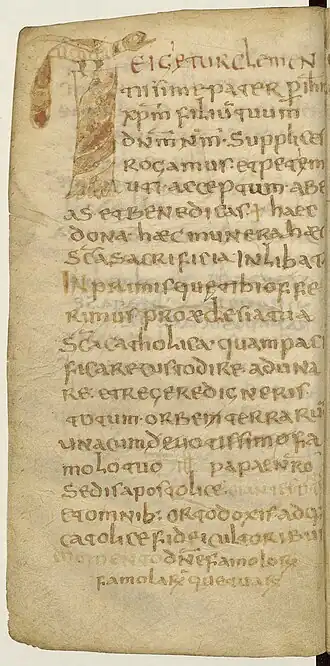 TEIGETURCLEMEN
TISSIMEPATER PIHM
XPM FILIUTUUM
DNMNM·SUPPLICES
ROGAMUS·ETPETIM
UTI·ACCEPTUM·ABE
AS ETBENEDICAS· haec
DONA·haecMUNERAhaec
SCASACRIFICIAINLIBAT
INPRIMISQUETIBIOFFE
RIMUS·PROAECLESIATUA
SCACATHOLICA QUAMPACI
FICARECUSTODIRE·ADUNA
RE·ETREGEREDIGNERIS
TOTUM·ORBEMTERRARU
UNACUMDEUOTISSIMOFA
MOLOTUO PAPAENRO
SEDISAPOSTOLICE
ETOMNIB:ORTODOXISADQ
CATOLICEFIDEICULTORIBUS
MEMENTODNEFAMOLORU
FAMOLARUQUETUARU